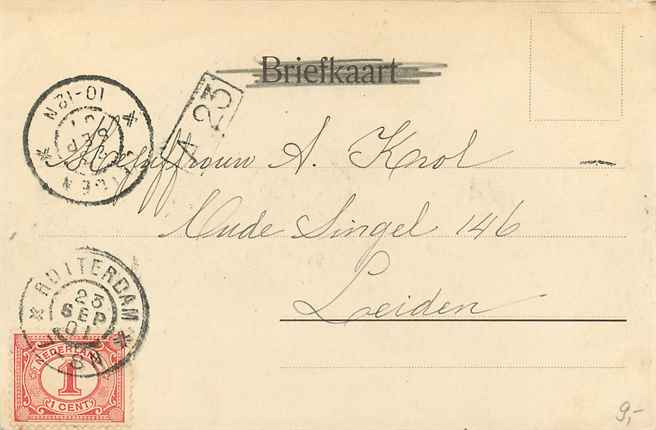 Briefkaart
10-12N
LEIDEN
SEP
01
4
23
Mejuffrouw A. Krol
Oude Singel 146
Leiden
ROTTERDAM
23
SEP
01
8N
NEDERLAND
1
1 CENT
9,-